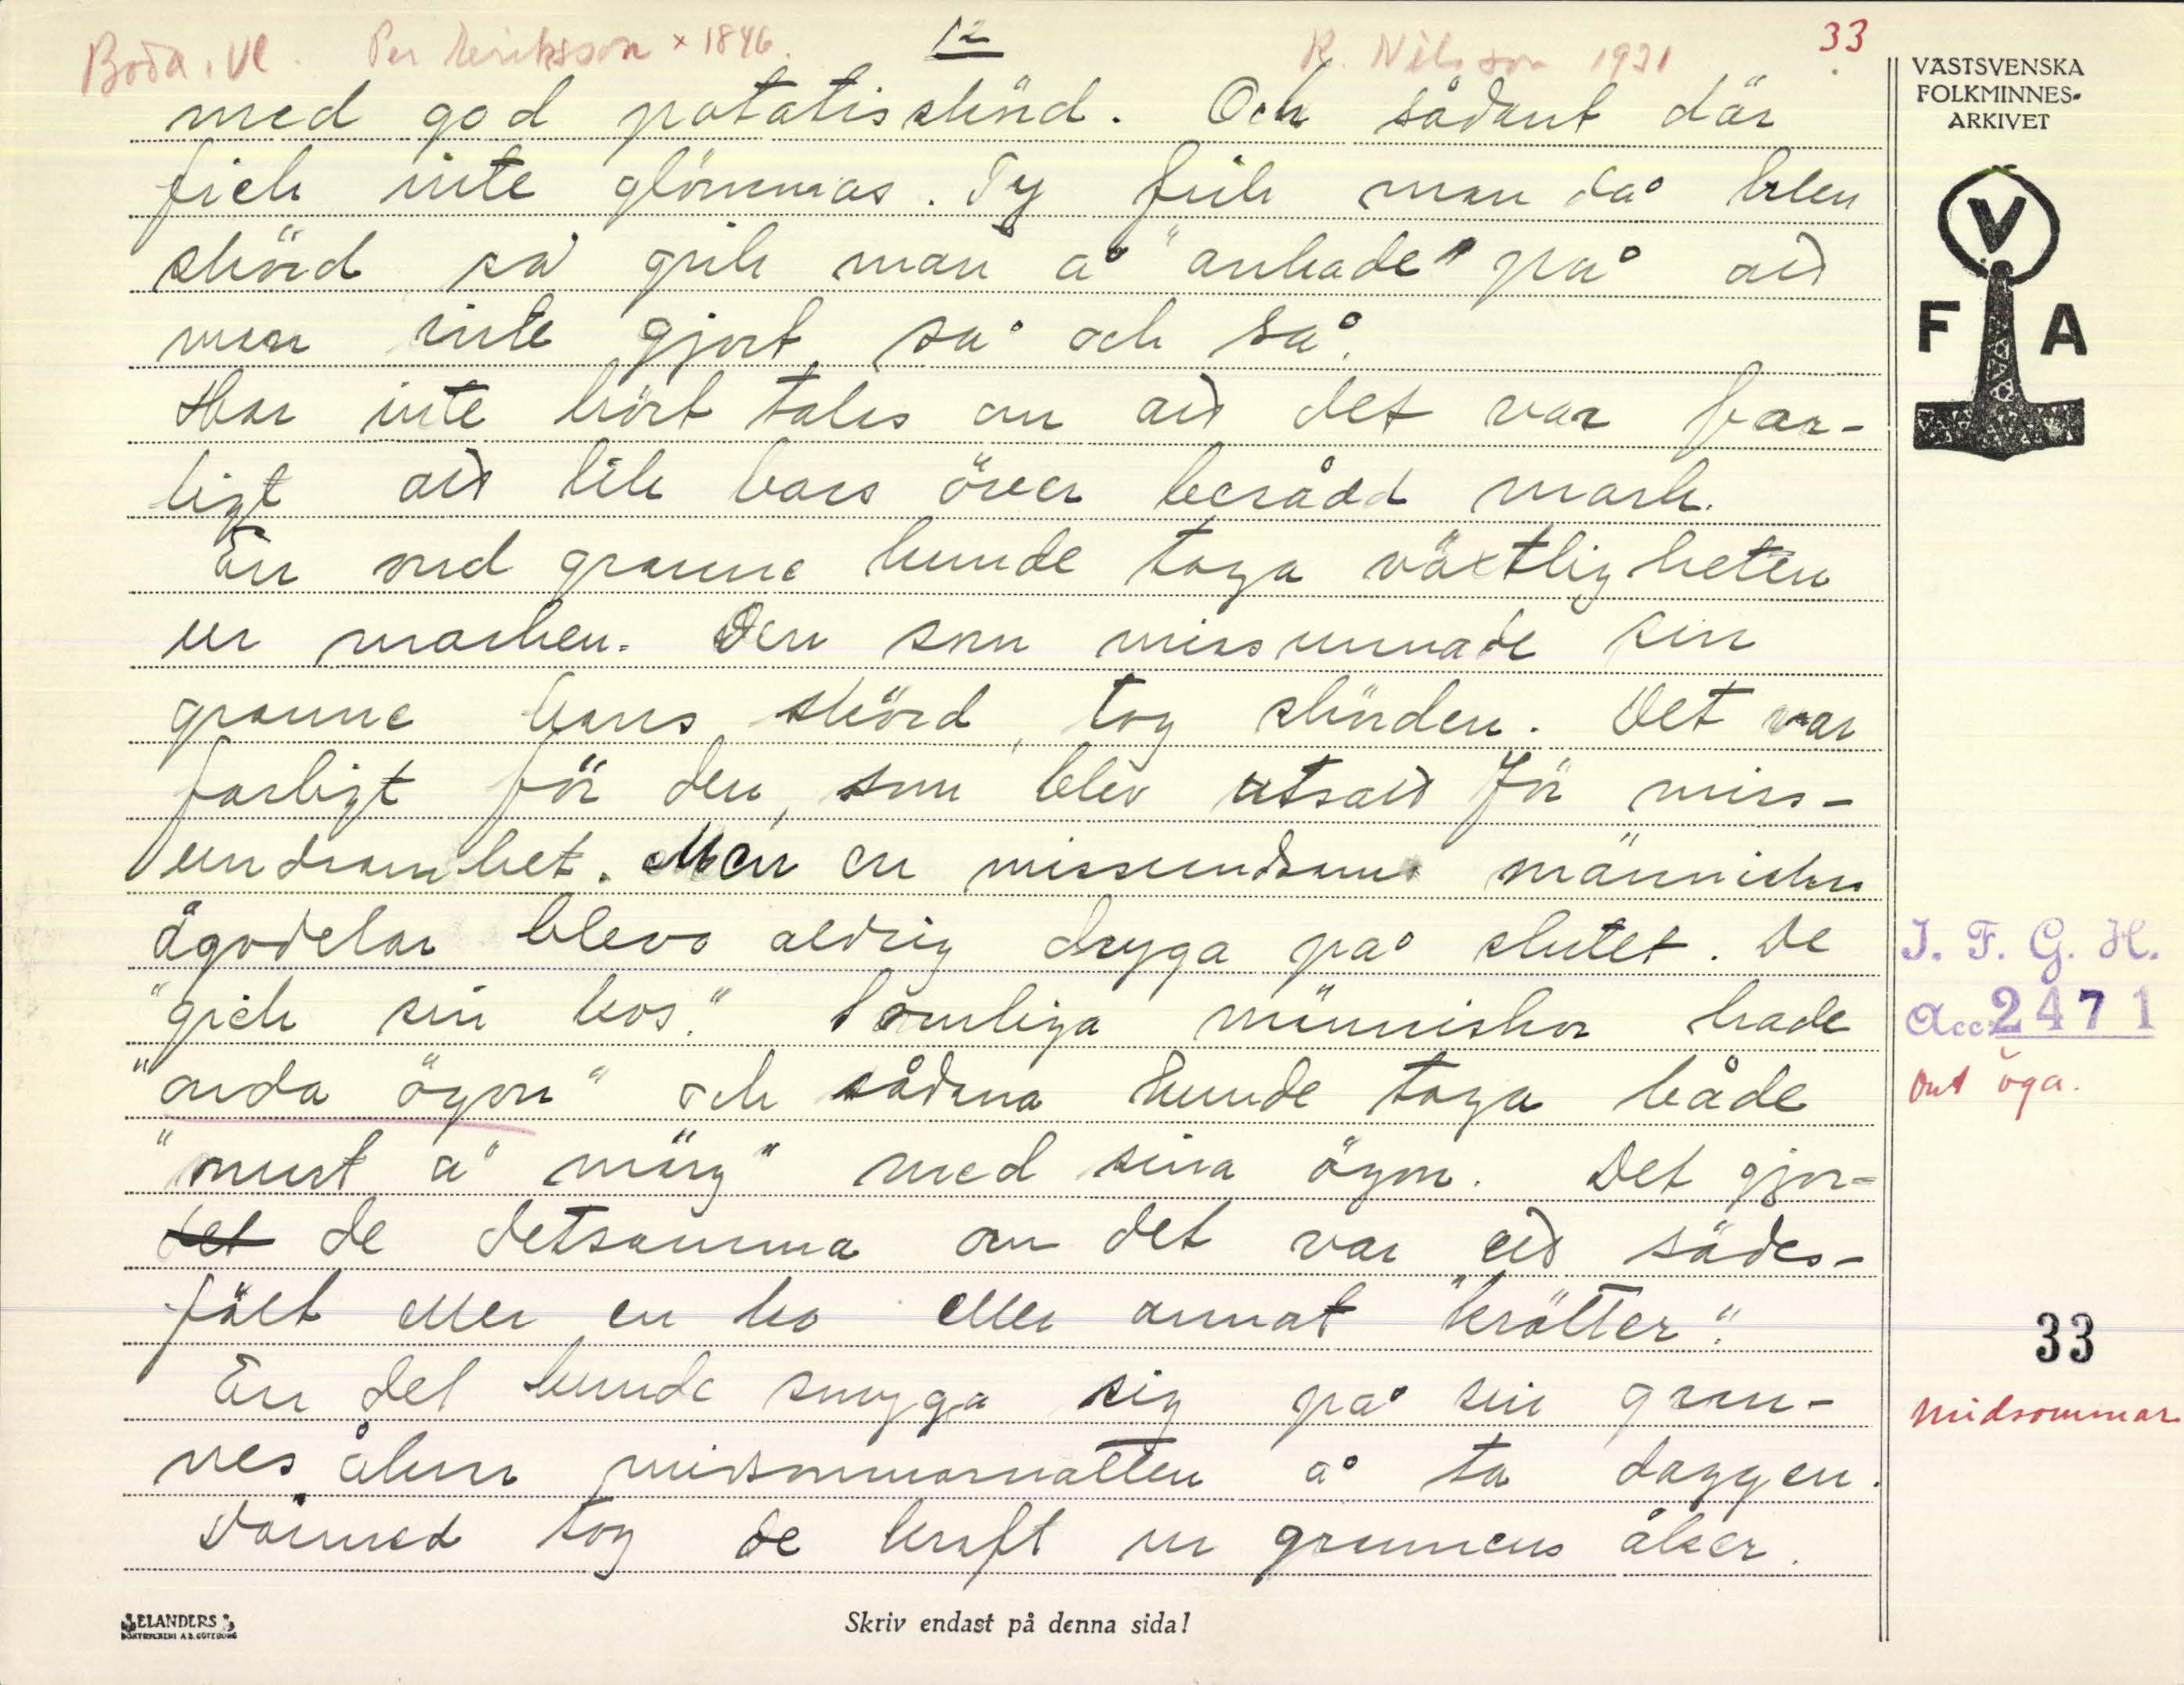 Boda, Vl. Per Eriksson × 1846.
12
R. Nilsson 1931
33
med god potatisskörd. Och sådant där
fick inte glömmas. Ty fick man då klen
skörd så gick man å "ankade" på att
man inte gjort så och så.
Har inte hört talas om att det var far-
ligt att lik bars över besådd mark.
En ond granne kunde taga växtligheten
ur marken. Den som missunnade sin
granne hans skörd, tog skörden. Det var
farligt för den, som blev utsatt för miss-
undsamhet. Men en missundsam människas
ägodelar blevo aldrig dryga på slutet. De
"gick sin kos." Somliga människor hade
"onda ögon" och sådana kunde taga både
"must å märg" med sina ögon. Det gjor-
det de detsamma om det var ett sädes-
fält eller en ko eller annat "krätter".
En del kunde smyga sig på sin gran-
nes åkrar midsommarnatten å ta daggen.
Därmed tog de kraft ur grannens åker.
VÄSTSVENSKA
FOLKMINNES-
ARKIVET
V
F A
I. F. G. H.
Acc. 2471
Ont öga.
33
Midsommar
ELANDERS
BOKTRYCKERI A.B. GÖTEBORG
Skriv endast på denna sida!